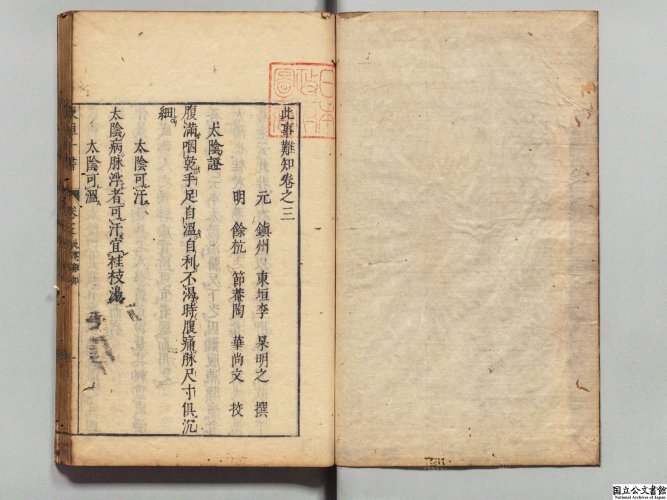 此事難知卷之三
元 鎮州 東垣李 杲明之 撰
明 餘杭 節菴陶 華尚文 挍
太陰證
腹滿咽乾手足自溫自利不渴時腹痛脉尺寸俱沉
細
太陰可汗
太陰病脉浮者可汗宜桂枝湯
太陰可溫
東垣十書
卷三
日本
政
圖
国立公文書館
National Archives of Japan